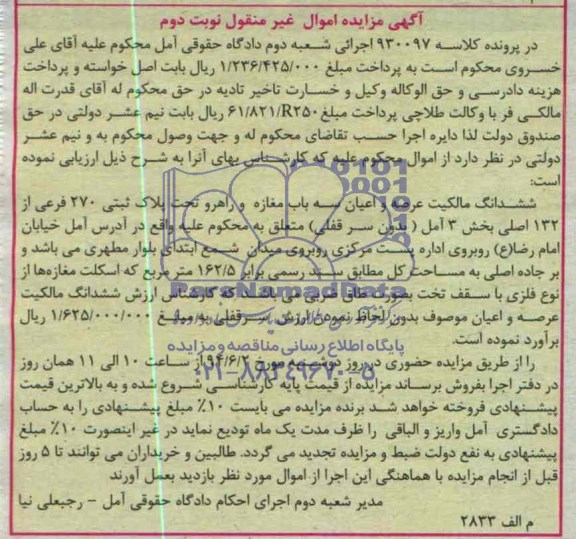 آگهی مزایده اموال غیر منقول نوبت دوم
در پرونده کلاسه ۹۳۰۰۹۷ اجرائی شعبه دوم دادگاه حقوقی آمل محکوم علیه آقای علی
خسروی محکوم است به پرداخت مبلغ ۱/۲۳۶/۴۲۵/۰۰۰ ریال بابت اصل خواسته و پرداخت
هزینه دادرسی و حق الوکاله وکیل و خسارت تاخیر تادیه در حق محکوم له آقای قدرت اله
مالکی فر با وکالت طلاچی پرداخت مبلغ ۶۱/۸۲۱/R۲۵۰ ریال بابت نیم عشر دولتی در حق
صندوق دولت لذا دایره اجرا حسب تقاضای محکوم له و جهت وصول محکوم به و نیم عشر
دولتی در نظر دارد از اموال محکوم علیه که کارشناس بهای آنرا به شرح ذیل ارزیابی نموده
است:
ششدانگ مالکیت عرصه و اعیان سه باب مغازه و راهرو تحت پلاک ثبتی ۲۷۰ فرعی از
۱۳۲ اصلی بخش ۳ آمل (بدون سر قفلی) متعلق به محکوم علیه واقع در آدرس آمل خیابان
امام رضا(ع) روبروی اداره پست مرکزی روبروی میدان شمع ابتدای بلوار مطهری می باشد و
بر جاده اصلی به مساحت کل مطابق سند رسمی برابر ۱۶۲/۵ متر مربع که اسکلت مغازه‌ها از
نوع فلزی با سقف تخت بصورت طاق ضربی می باشد که کارشناس ارزش ششدانگ مالکیت
عرصه و اعیان موصوف بدون لحاظ نمودن ارزش سرقفلی به مبلغ ۱/۶۲۵/۰۰۰/۰۰۰ ریال
برآورد نموده است.
ParsNamadData
پایگاه اطلاع رسانی مناقصه و مزایده
۰۲۱-۸۸۳۴۹۶۷۰-۵
را از طریق مزایده حضوری در روز دوشنبه مورخ ۹۴/۶/۲ از ساعت ۱۰ الی ۱۱ همان روز
در دفتر اجرا بفروش برساند مزایده از قیمت پایه کارشناسی شروع شده و به بالاترین قیمت
پیشنهادی فروخته خواهد شد برنده مزایده می بایست ۱۰٪ مبلغ پیشنهادی را به حساب
دادگستری آمل واریز و الباقی را ظرف مدت یک ماه تودیع نماید در غیر اینصورت ۱۰٪ مبلغ
پیشنهادی به نفع دولت ضبط و مزایده تجدید می گردد. طالبین و خریداران می توانند تا ۵ روز
قبل از انجام مزایده با هماهنگی این اجرا از اموال مورد نظر بازدید بعمل آورند
مدیر شعبه دوم اجرای احکام دادگاه حقوقی آمل - رجبعلی نیا
م الف ۲۸۳۳